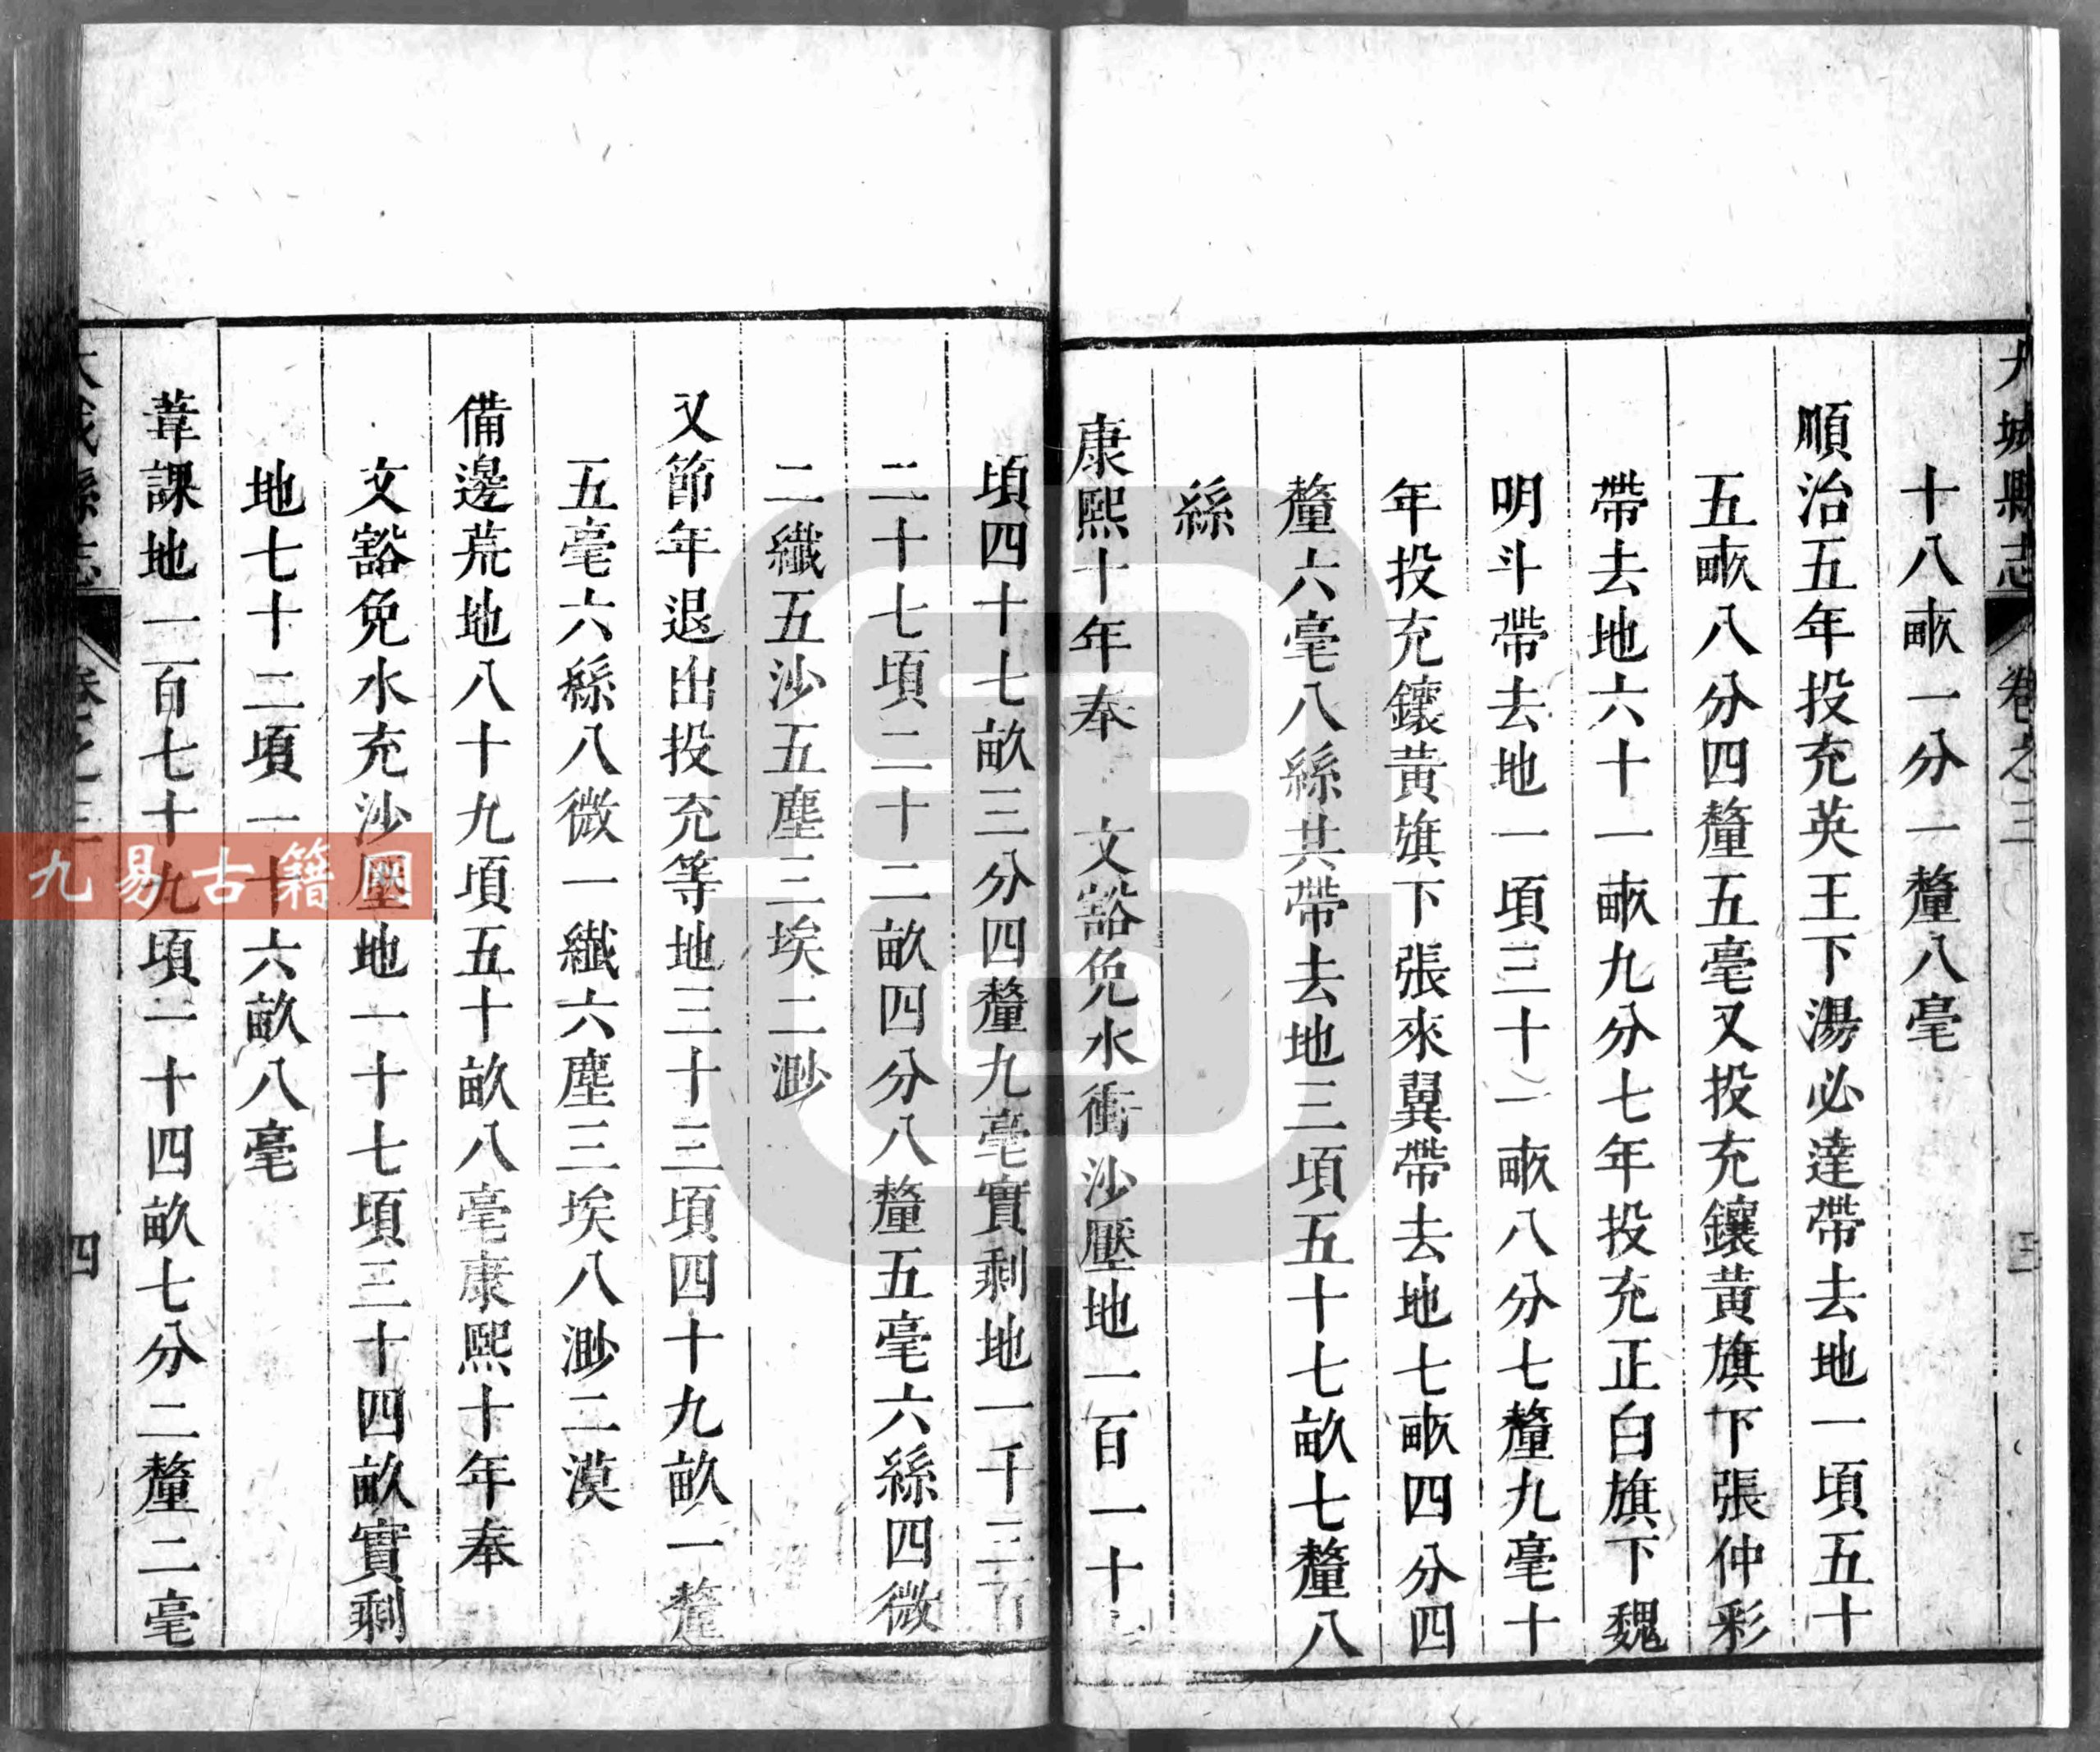 大城縣志 卷之三 三
十八畝一分一釐八毫
順治五年投充英王下湯必達帶去地一頃五十
五畝八分四釐五毫又投充鑲黃旗下張仲彩
帶去地六十一畝九分七年投充正白旗下魏
明斗帶去地一頃三十一畝八分七釐九毫十
年投充鑲黃旗下張來翼帶去地七畝四分四
釐六毫八絲共帶去地三頃五十七畝七釐八
絲
康熙十年奉 文豁免水衝沙壓地一百一十七
頃四十七畝三分四釐九毫實剩地一千三百
二十七頃二十二畝四分八釐五毫六絲四微
二纖五沙五塵三埃二渺
又節年退出投充等地三十三頃四十九畝一釐
五毫六絲八微一纖六塵三埃八渺二漠
備邊荒地八十九頃五十畝八毫康熙十年奉
文豁免水充沙壓地一十七頃三十四畝實剩
地七十二頃一十六畝八毫
葦課地一百七十九頃一十四畝七分二釐二毫
大城縣志 卷之三 四
九易古籍网